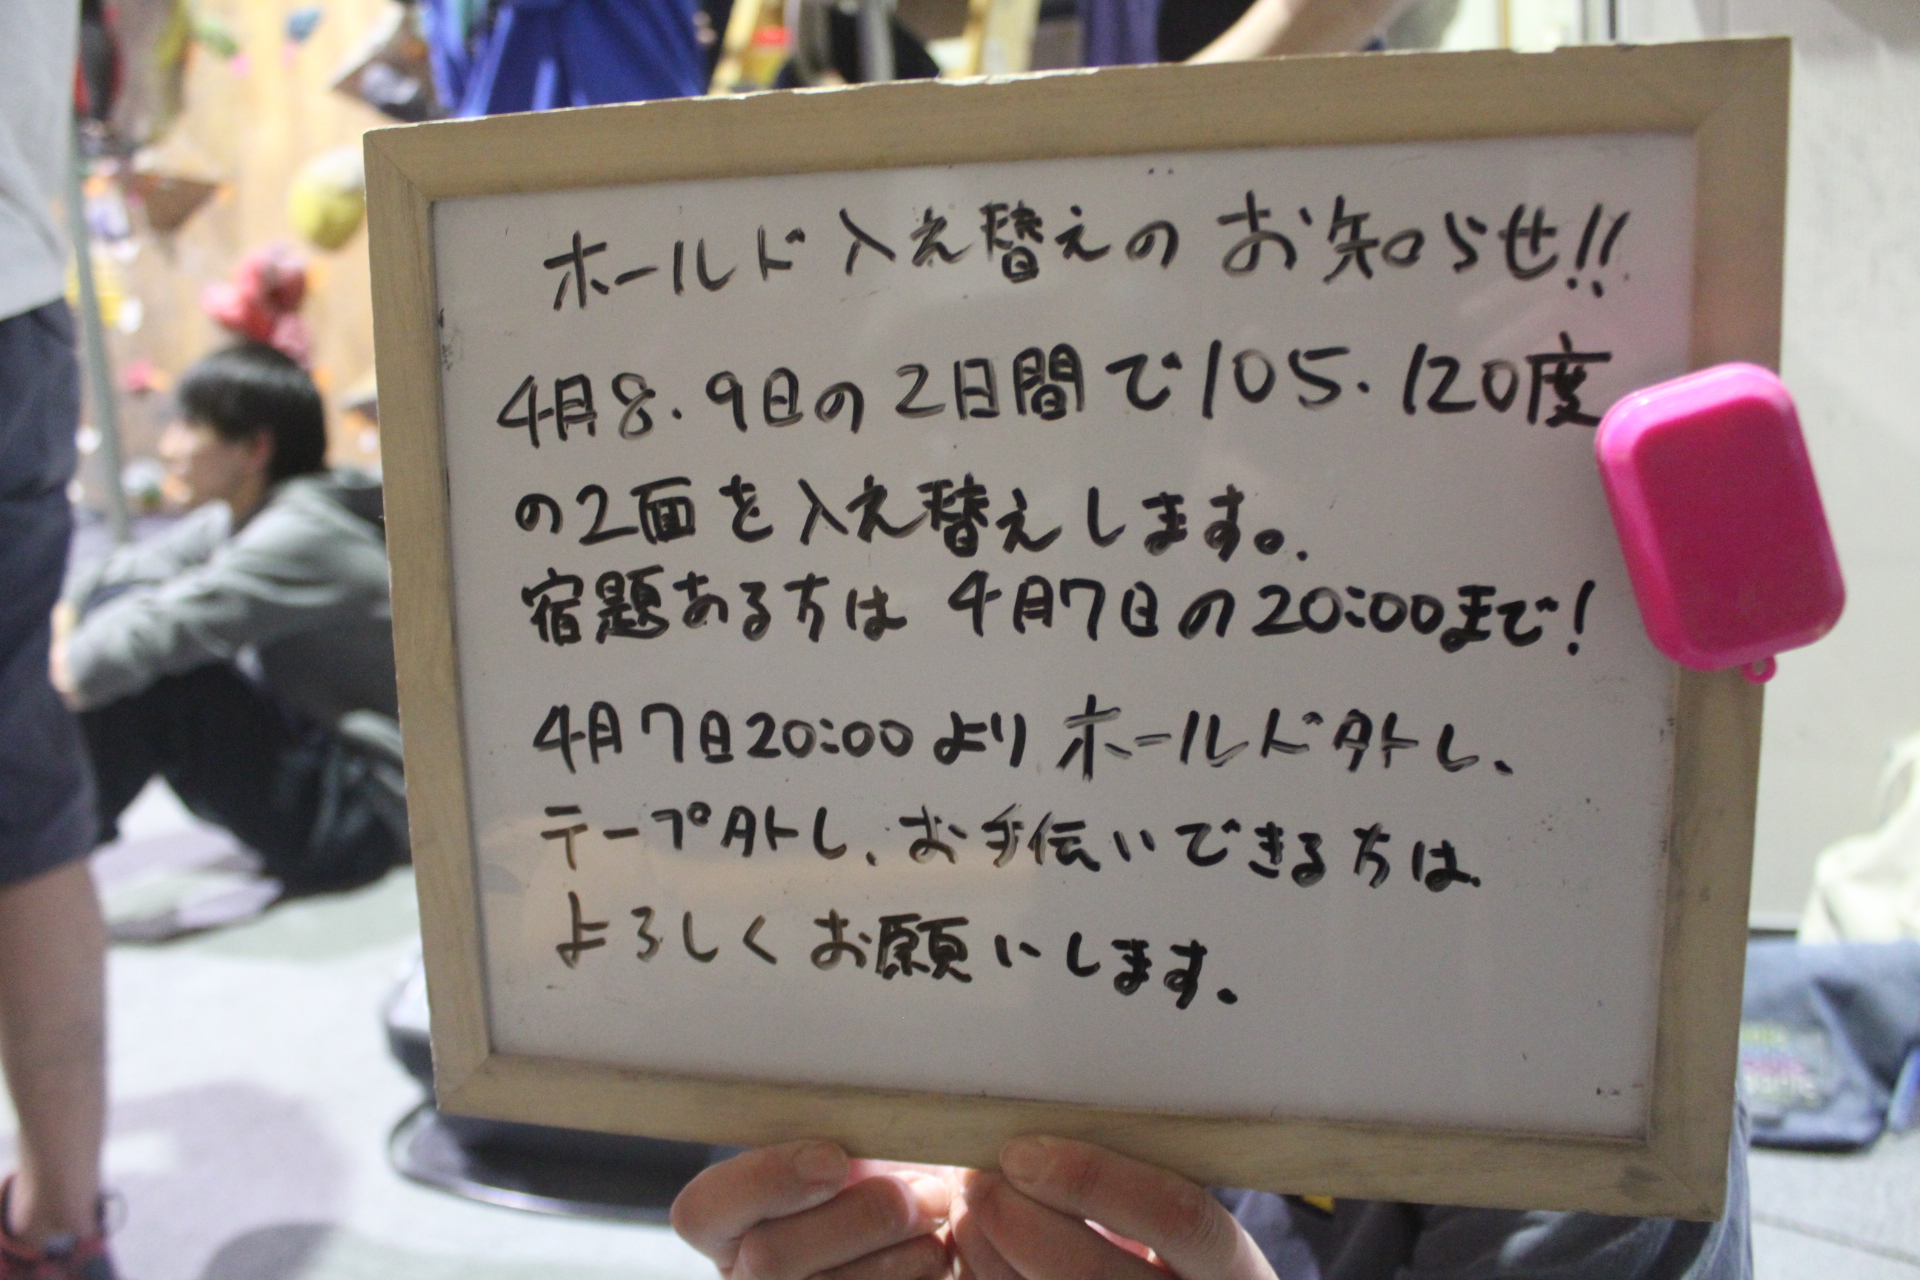 ホールド入え替えのお知らせ!!
4月8.9日の2日間で105.120度
の2面を入え替えします。
宿題ある方は4月7日の20:00まで!
4月7日20:00よりホールド外し、
テープ外し、お手伝いできる方は
よろしくお願いします。